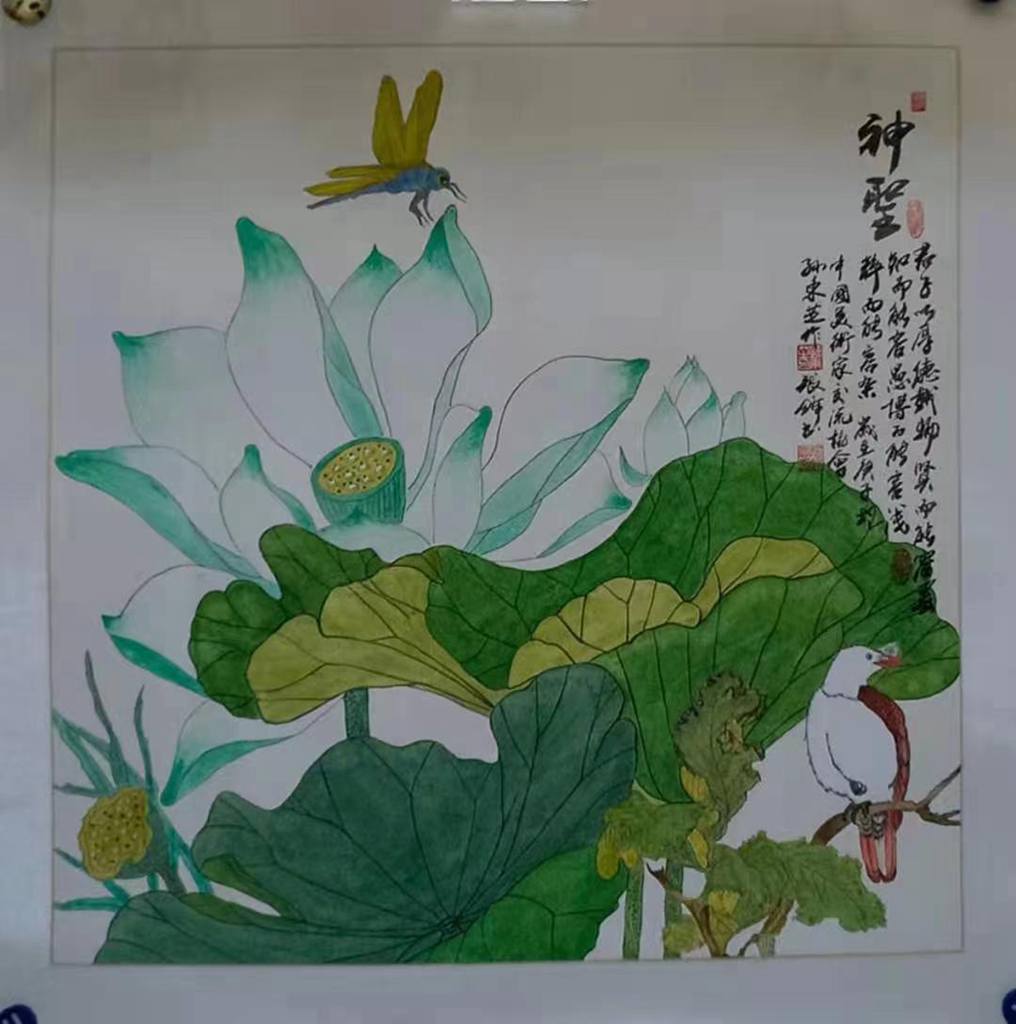 神聖
君子以厚德載物 賢而能容愚
知而能容愚博而能容浅
粹而能容杂 歲在庚子秋
中國美術家交流协會
孙东芝作
振鐸书